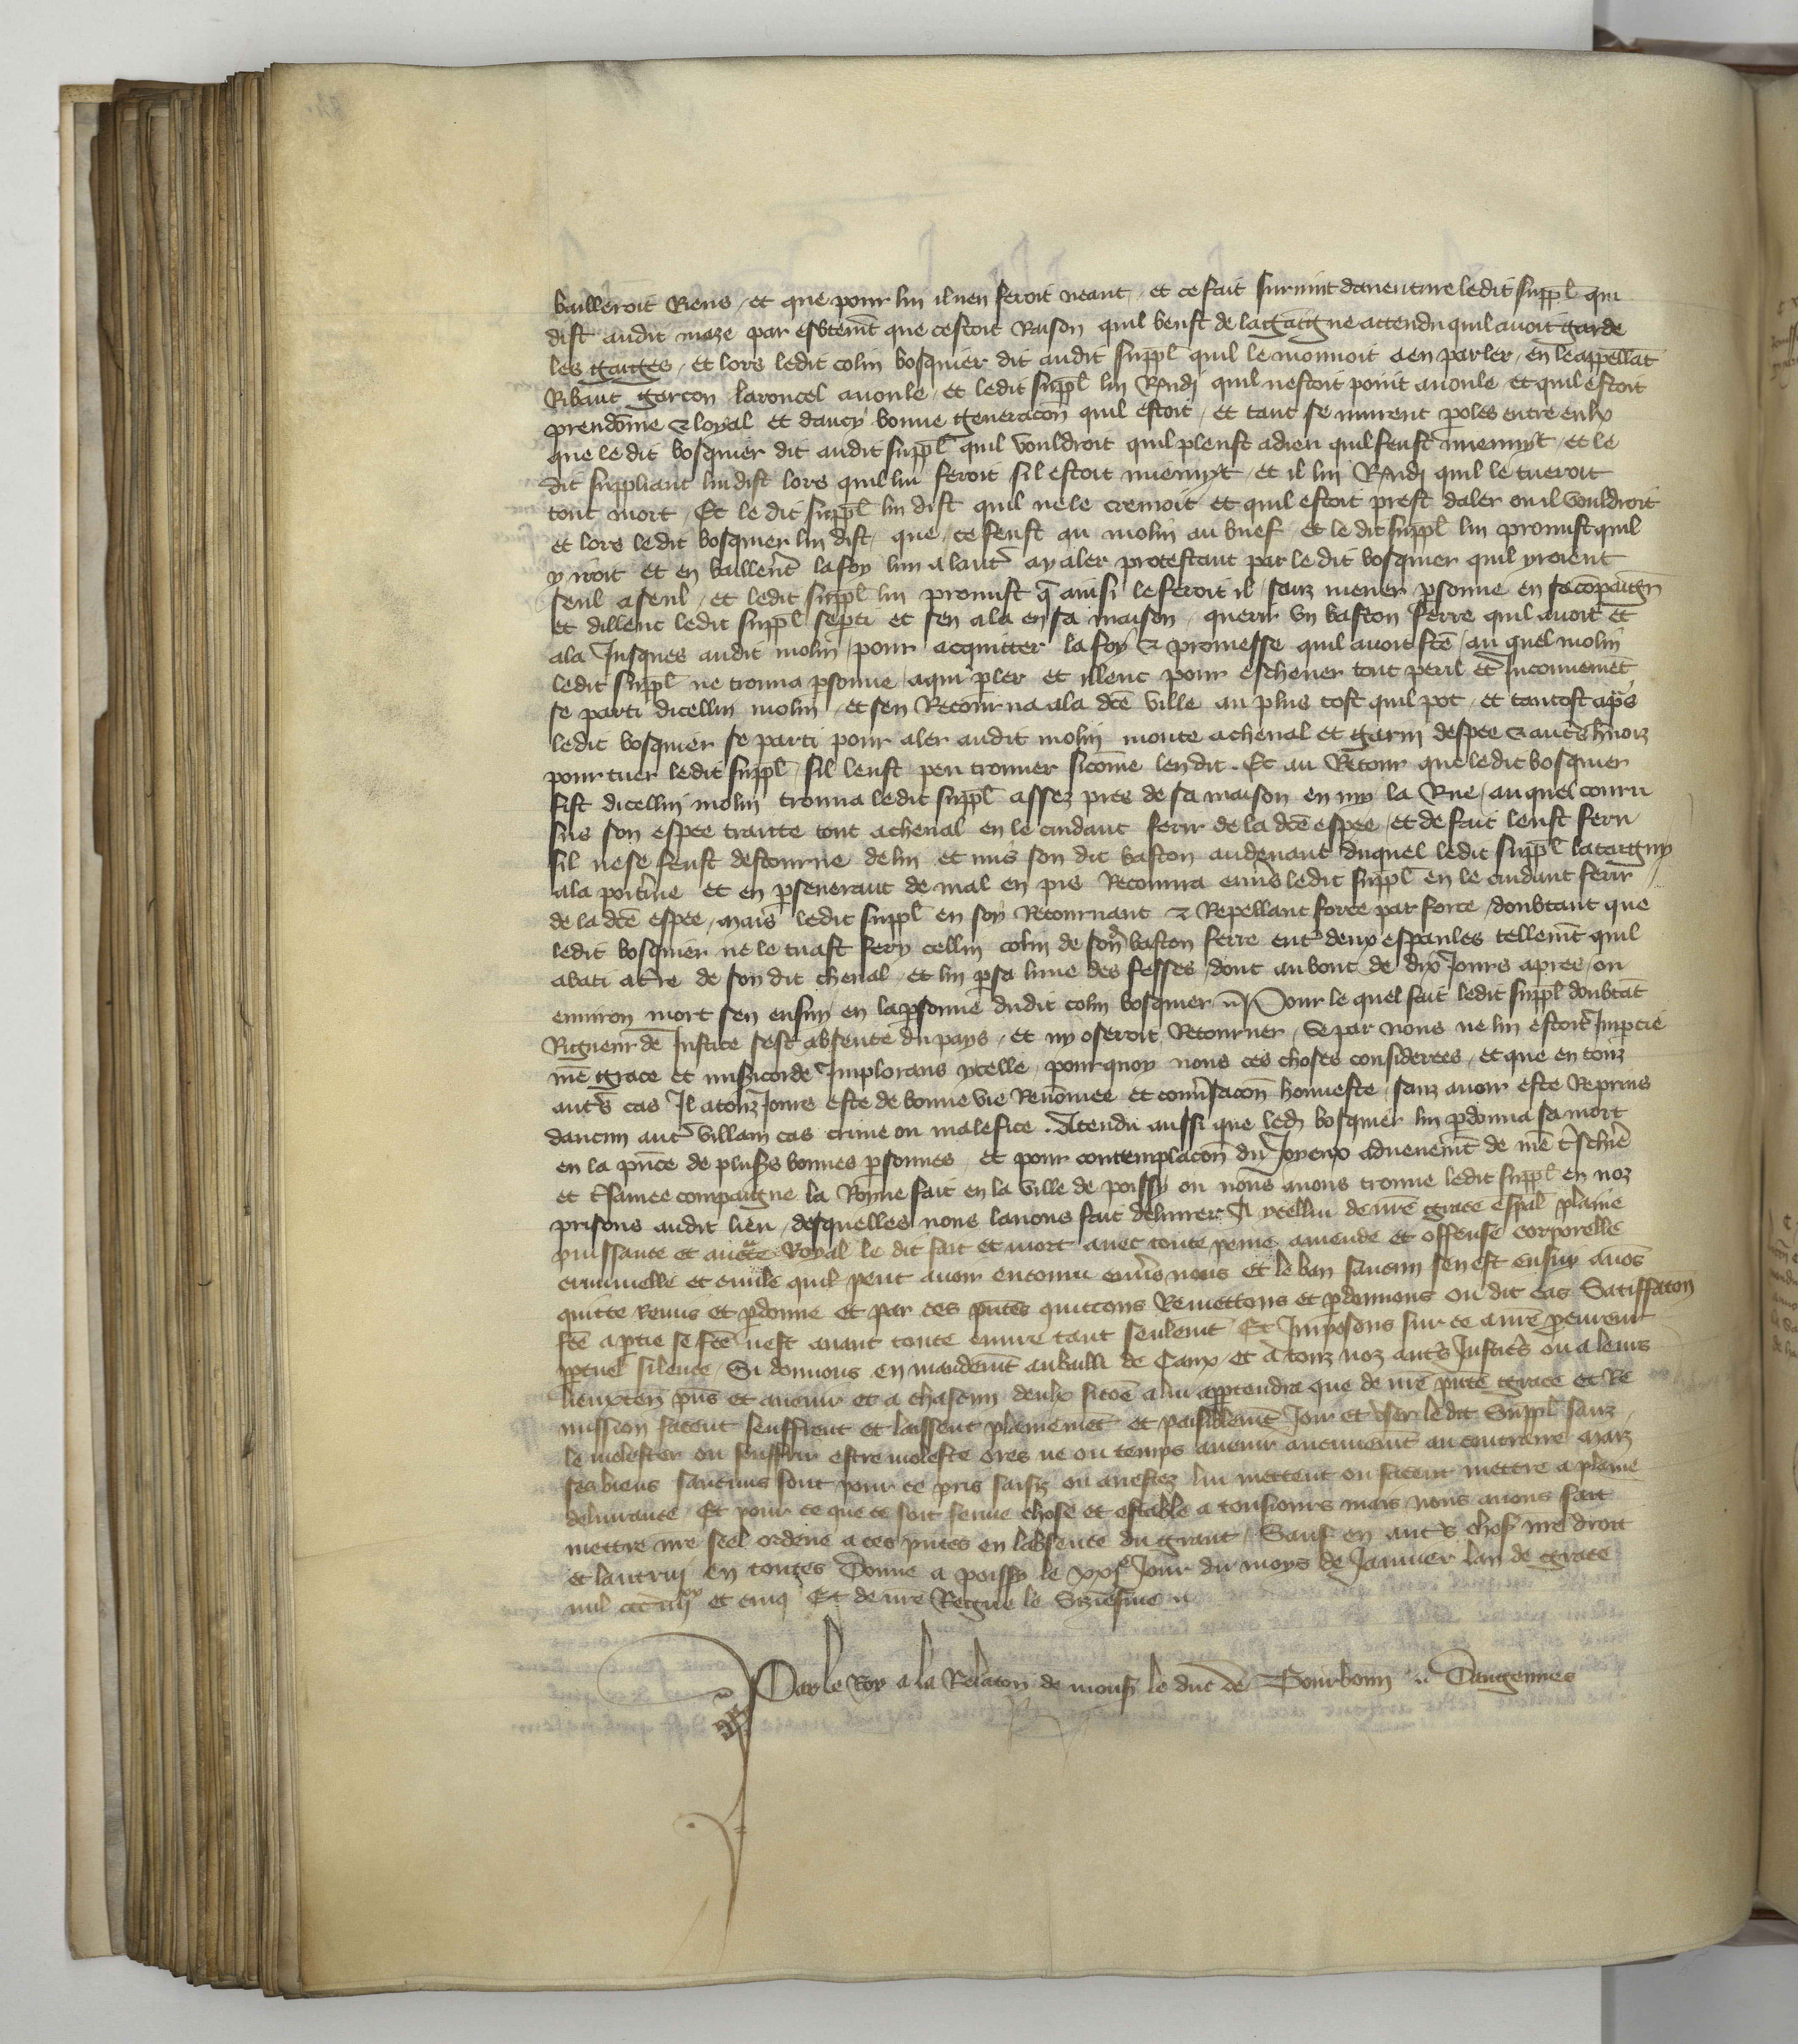 bailleroit Riens / et que pour lui il nen feroit neant / et ce fait survint daventure ledit suppl̄ qui
dist audit maze par esbtem̄t que cestoit Raison quil beust de la gaigne attendu quil avoit garde
les gaiges / et lors ledit colin bosquier dit audit suppl̄ quil le mouvoit a en parler / en le appellāt
Ribaut garcon laroncel avoule / et ledit suppl̄ lui Rn̄dj quil nestoit point avoule et quil estoit
preudōme & loyal et daucy bonne generacōn quil estoit / et tant se murent p̄oles entre eulx
que le dit bosquier dit audit suppl̄ quil vouldroit quil pleust a dieu quil feust mienuyt / et le
dit suppliant lui dist lors quil lui feroit sil estoit mienuyt / et il lui Rn̄dj quil le tueroit
tout mort / Et le dit suppl̄ lui dist quil ne le cremoit et quil estoit prest daler ou il vouldroit
et lors ledit bosquier lui dist / que / ce feust au molin au buef / et le dit suppl̄ lui promist quil
y iroit et en baillerēt la foy lun a laut̄ a y aler protestant par le dit bosquier quil yroient
seul a seul / et ledit suppl̄ lui promist q̄ ainsi le feroit il / sanz mener p̄sonne en sa cōpaign̄
et dillenc ledit suppl̄ se p̄ti et sen ala en sa maison / querir un baston ferre quil avoit et
ala Jusques audit molin / pour acquitter la foy & promesse quil avoit fcē / au quel molin
ledit suppl̄ ne trouva p̄sonne a qui p̄ler et illenc pour eschever tout peril et Inconveniēt
se parti dicellui molin / et sen Retourna a la dcē ville au plus tost quil pot / et tantost ap̄s
ledit bosquier se parti pour aler audit molin monte a cheval et garni despee & aut̄s harnoiz
pour tuer ledit suppl̄ / sil leust peu trouver sicōme len dit . Et au Retour que ledit bosquier
fist dicellui molin trouva ledit suppl̄ assez pres de sa maison en my la Rue / au quel couru
sus son espee traitte tout a cheval en le cuidant ferir de la dcē espee / et de fait leust feru
sil ne se feust destourne de lui et mis son dit baston au devant duquel ledit suppl̄ lataigny
a la poitrine et en p̄severant de mal en pis Recouvra env̄s ledit suppl̄ en le cuidant ferir
de la dcē espee / mais ledit suppl̄ en soy Retournant & Repellant force par force / doubtant que
ledit bosquier ne le tuast fery cellui colin de son baston ferre ent̄ deux espaules tellem̄t quil
abati at̄re de son dit cheval / et lui p̄sa lune des fesses / dont au bout de dix Jours apres / ou
environ mort sen ensuy en la p̄sonne dudit colin bosquier .. Pour le quel fait ledit suppl̄ doubtāt
Rigueur de Justice sest absente du pays / et ny oseroit Retourner / Se par nous ne lui estoit Imp̄tie
nr̄e grace et mis̄icorde Implorans ycelle / pourquoy nous ces choses considerees / et que en touz
aut̄s cas Il a touz Jours este de bonne vie Renōmee et conv̄sacōn honneste sanz avoir este Reprins
daucun aut̄ villain cas crime ou malefice . Attendu aussi que led̄ bosquier lui p̄donna sa mort
en la p̄nce de plus̄s bonnes p̄sonnes / et pour contemplacōn du Joyeux advenem̄t de nr̄e t̄schiē
et t̄samee compaigne la Royne fait en la ville de poissy ou nous avons trouve ledit suppl̄ en noz
prisons audit lieu / desquelles nous lavons fait delivrer A ycellui de nr̄e grace esp̄al plaine
puissance et auct̄te Royal le dit fait et mort avec toute peine amende et offense corporelle
criminelle et civile quil peut avoir encouru env̄s nous et le ban saucun sen est ensuy avōs
quitte Remis et p̄donne et par ces p̄ntes quittons Remettons et p̄donnons ou dit cas Satisfacōn
fcē a p̄tie se fcē nest avant toute euvre tant seulem̄t Et Imposons sur ce a nr̄e p̄cureur
pp̄tuel silence / Si donnons en mandem̄t au bailli de Caux / et a touz noz aut̄s Justic̄s ou a leurs
lieuxten̄ p̄ns et avenir et a chascun deulx sicōe a lui app̄tendra que de nr̄e p̄nte grace et Re
mission facent seuffrent et laissent plainemēt et paisiblem̄t Joir et user le dit Suppl̄ sanz
le molester ou souffrir estre moleste ores ne ou temps avenir aucunem̄t au contraire maiz
ses biens saucuns sont pour ce pris saisiz ou arrestez lui mettent ou facent mettre a plaine
delivrance / Et pour ce que ce soit ferme chose et estable a tousiours mais nous avons fait
mettre nr̄e seel ordene a ces p̄ntes en labsence du grant / Sauf en aut̄s chos̄ nr̄e droit
et lautruj en toutes Donne a poissy le xxje Jour du moys de Janvier lan de grace
mil ccc iiijxx et cinq Et de nr̄e Regne le Siziesme ..
Par le Roy a la Relacōn de mons̄ le duc de Bourbonn̄ .. Dangennes